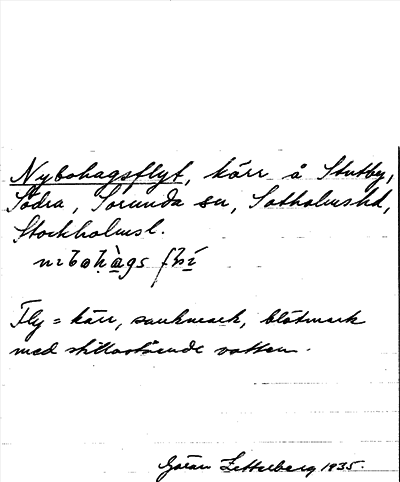 Nybohagsflyt, kärr å Stutby,
Södra, Sorunda sn, Sotholmshd,
Stockholmsl.
Fly = kärr, sankmark, blötmark
med stillastående vatten.
Göran Zetterberg 1935.